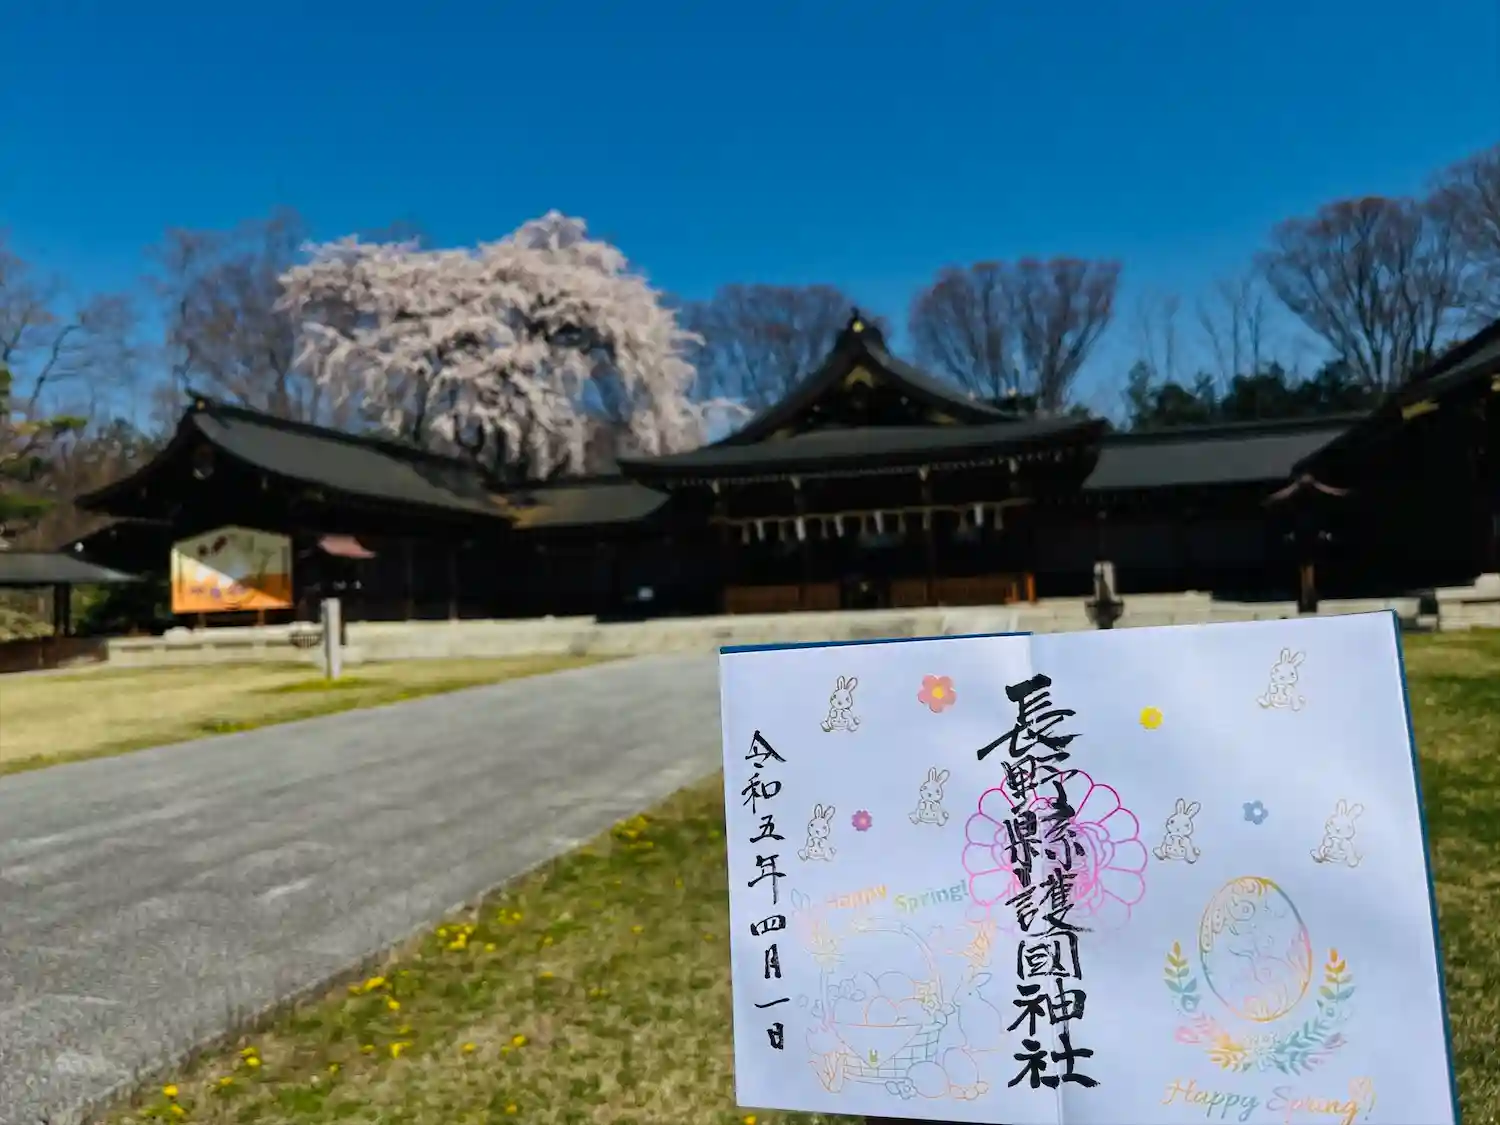 長野縣護國神社
令和五年四月一日
Happy Spring!
Happy Spring!